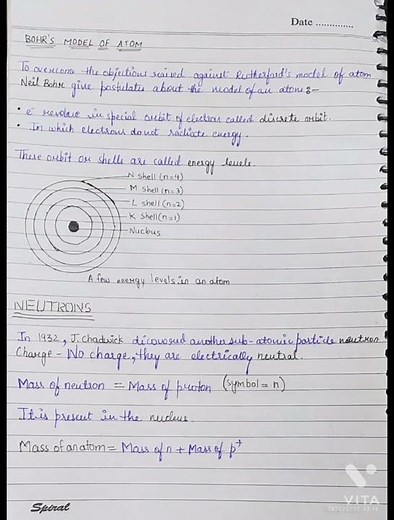 Date ..............
BOHR'S MODEL OF ATOM
To overcome the objections raised against Rutherford's model of atom
Neil Bohr give postulates about the model of an atom :-
• e⁻ revolve in special orbit of electron called discrete orbit.
• In which electrons donot radiate energy.
These orbit or shells are called energy levels.
N shell (n=4)
M shell (n=3)
L shell (n=2)
K shell (n=1)
Nucleus
A few energy levels in an atom
NEUTRONS
In 1932, J. Chadwick discovered another sub-atomic particle neutron
Charge - No charge, they are electrically neutral.
Mass of neutron = Mass of proton (symbol = n)
It is present in the nucleus
Mass of an atom = Mass of n + Mass of p⁺
Spiral
VITA